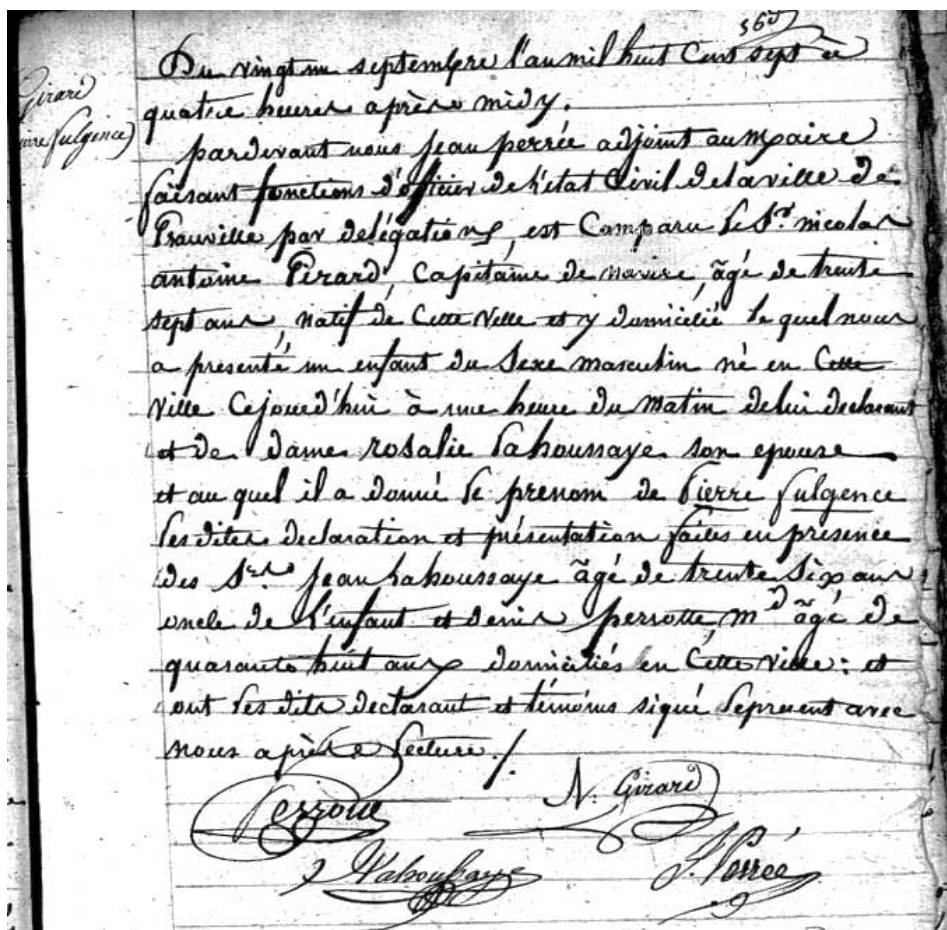 56d
Du vingt un septembre l'an mil huit Cent sept à
Girard
quatre heures après midy.
Pierre fulgence)
pardevant nous Jean perrée adjoint au maire
faisant fonctions d'officier de l'état Civil de la ville de
Granville par délégation, est Comparu le Sr. nicolas
antoine Girard, Capitaine de navire, âgé de trente
sept ans, natif de Cette ville et y domicilié le quel nous
a présenté un enfant du Sexe masculin né en Cette
ville Cejourd'hui à une heure du matin de lui declarant
et de dame rosalie Lahoussaye son epouse
et au quel il a donné le prenom de Pierre fulgence
les dites declaration et présentation faites en presence
des Srs. Jean Lahoussaye âgé de trente Six ans
oncle de L'enfant et denis perrotte, md âgé de
quarante huit ans domiciliés en Cette ville: et
ont les dits declarant et témoins signé le present avec
nous après Lecture./
N. Girard
Lahoussaye
J. Perrée